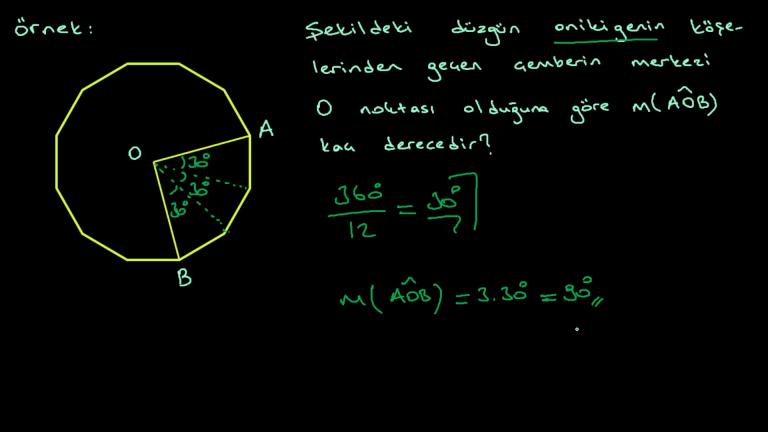 örnek:
Şekildeki düzgün onikigenin köşe-
lerinden geçen çemberin merkezi
O noktası olduğuna göre m(AÔB)
kaç derecedir?
A
O
30°
30°
30°
B
360° / 12 = 30°
m(AÔB) = 3.30° = 90°